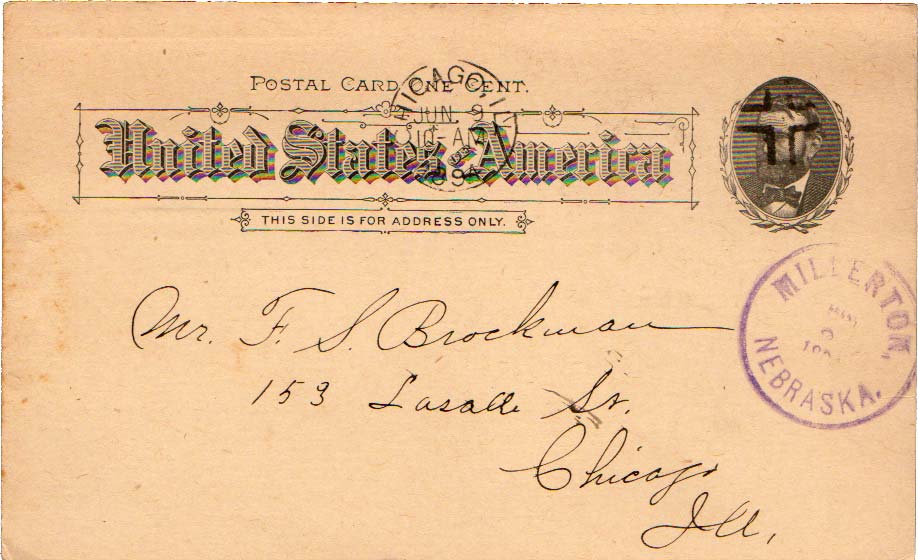 POSTAL CARD, ONE CENT.
CHICAGO, ILL.
JUN 9
10-AM
94
United States of America
THIS SIDE IS FOR ADDRESS ONLY.
MILLERTON,
NEBRASKA.
Mr. F. S. Brockman
153 Lasalle St.
Chicago
Ill,